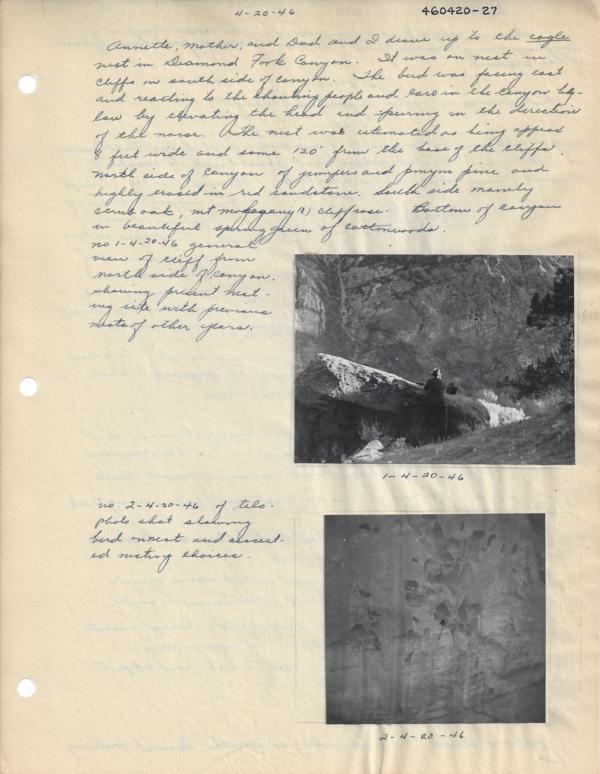 4-20-46
460420-27
Annette, Mother, and Dad and I drove up to the eagle
nest in Diamond Fork Canyon. It was on nest in
cliffs on south side of canyon. The bird was facing east
and reacting to the shouting people and cars in the canyon be-
low by elevating the head and peering in the direction
of the noise. The nest was estimated as being approx
8 feet wide and some 120' from the base of the cliffs.
North side of canyon of junipers and pinyon pine and
highly erosed in red sandstone. South side mainly
scrub oak, mt mahogany(?) cliffrose. Bottom of canyon
in beautiful spring green of cottonwoods.
no 1-4-20-46 general
view of cliff from
north side of canyon.
showing present nest-
ing site with previous
nests of other years.
1-4-20-46
no. 2-4-20-46 of tele-
photo shot showing
bird on nest and associat-
ed nesting choices.
2-4-20-46